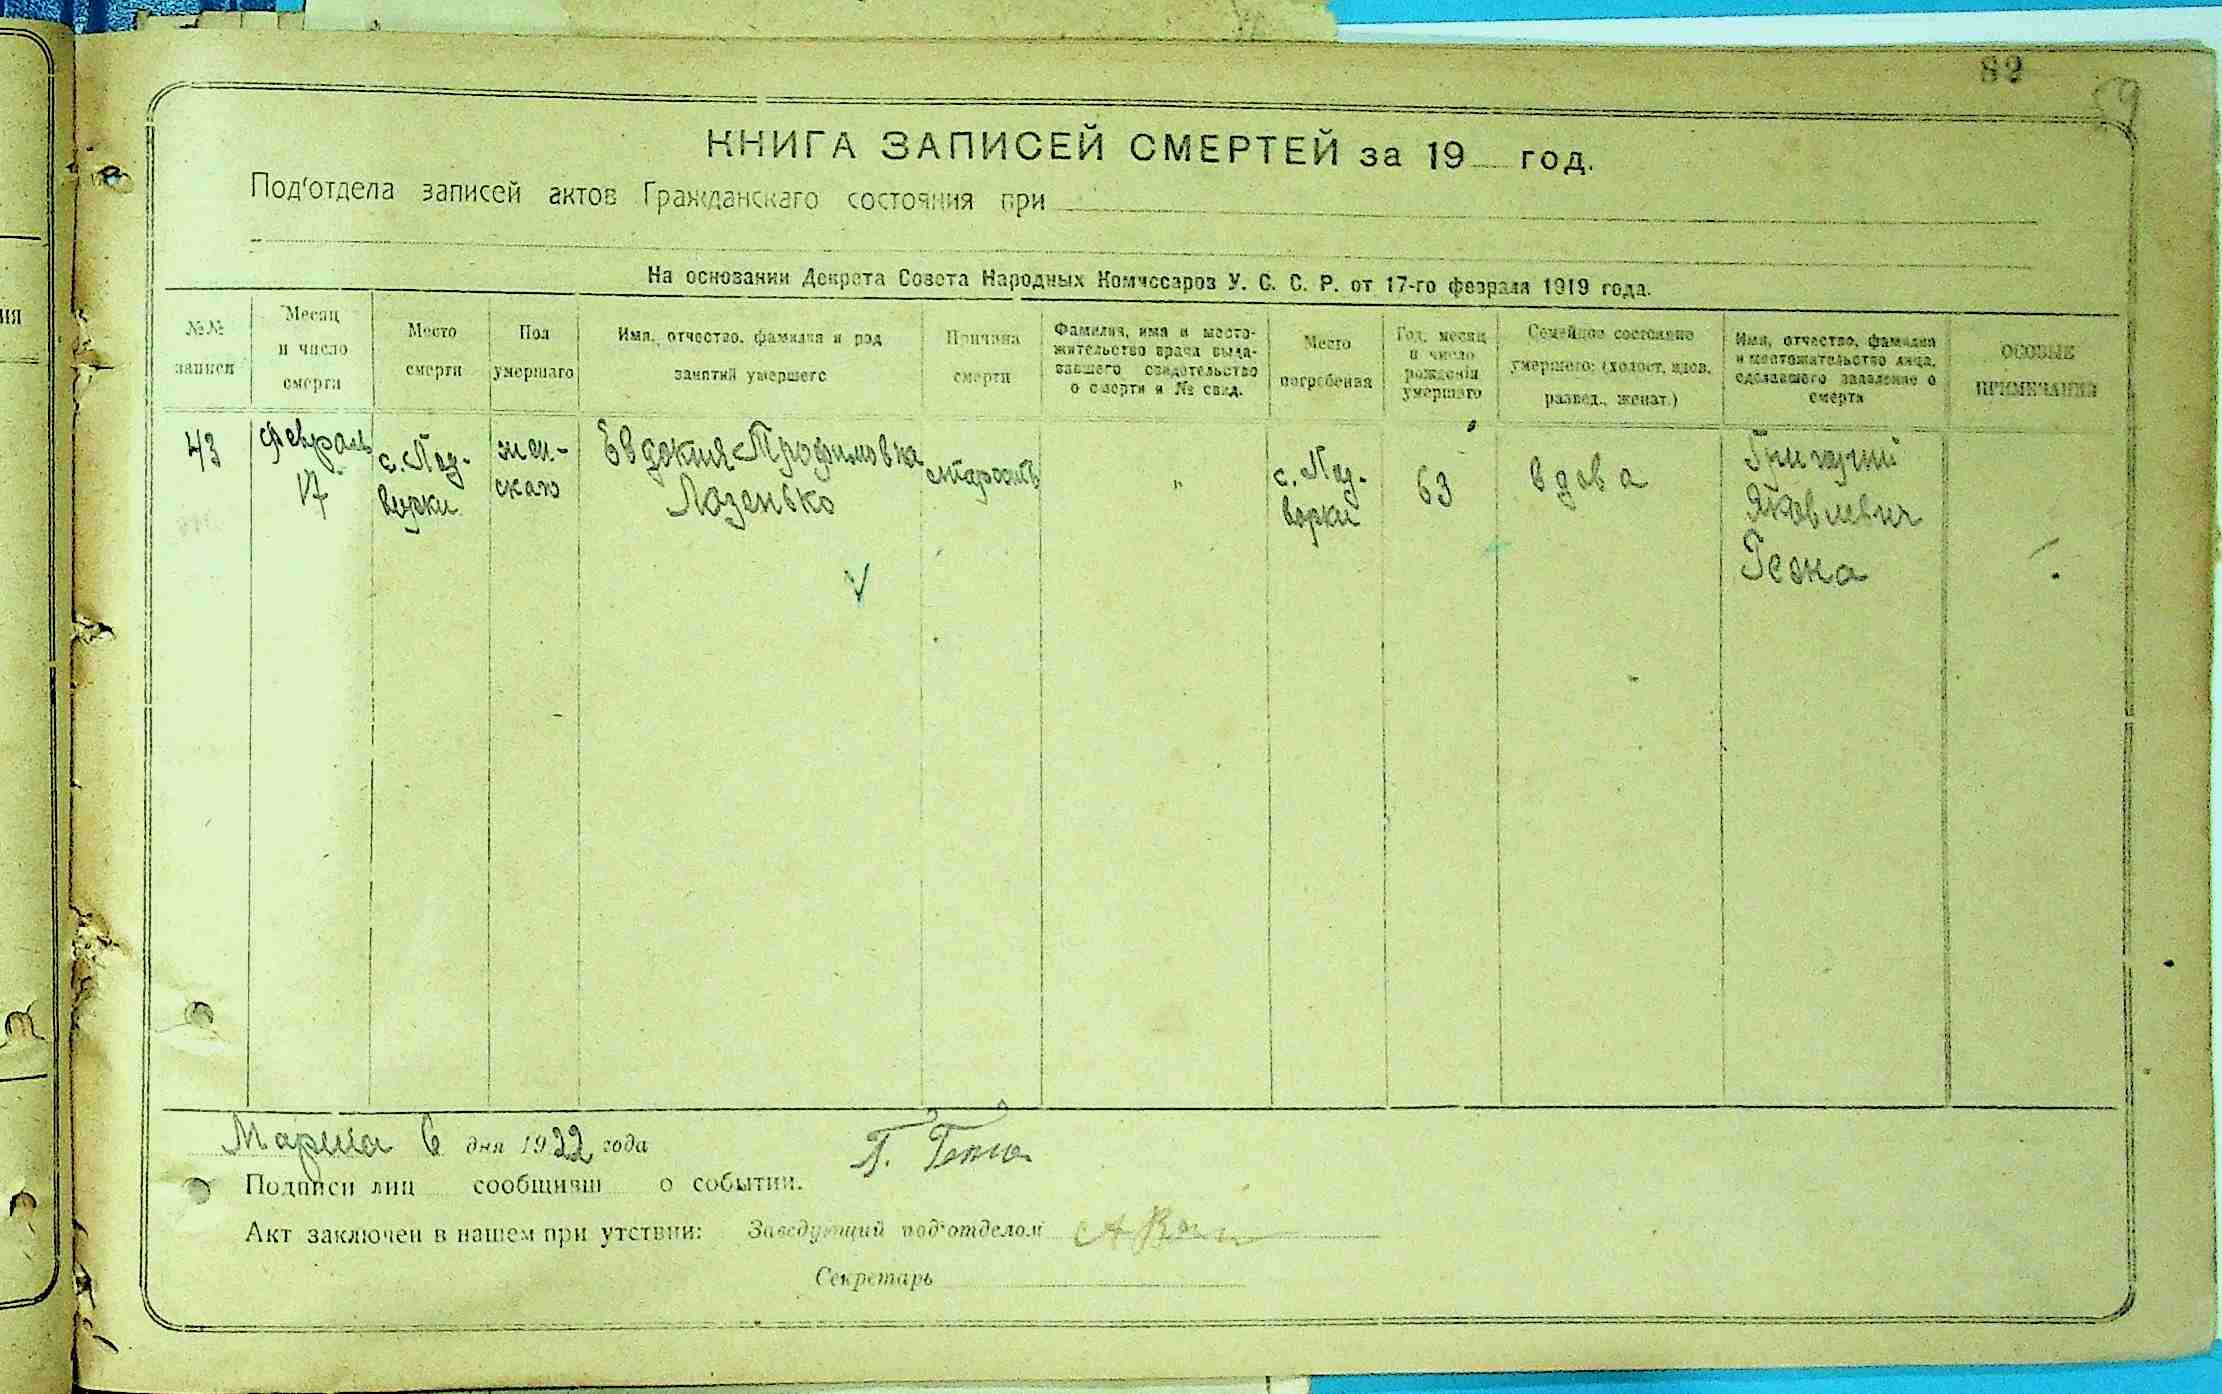 82
59
КНИГА ЗАПИСЕЙ СМЕРТЕЙ за 19 год.
Под'отдела записей актов Гражданскаго состояния при
На основании Декрета Совета Народных Комиссаров У. С. С. Р. от 17-го февраля 1919 года.
№№ записи
Месяц и число смерти
Место смерти
Пол умершаго
Имя, отчество, фамилия и род занятий умершего
Причина смерти
Фамилия, имя и место-
жительство врача выда-
вавшего свидетельство
о смерти и № свид.
Место погребения
Год, месяц
и число
рождения
умершаго
Семейное состояние
умершего: (холост, вдов,
развед., женат.)
Имя, отчество, фамилия
и местожительство лица,
сделавшего заявление о
смерти
ОСОБЫЕ
ПРИМЕЧАНИЯ
43
Февраль
17
с. Под-
ворки
жен-
скаго
Евдокия Трофимовна
Лозенько
старость
"
с. Под-
ворки
63
вдова
Григорий
Яковлевич
Гежа
Марта 6 дня 1922 года
Подписи лиц сообщивш о событии.
Г. Гежа
Акт заключен в нашем при утствии: Заведующий под'отделом
Секретарь